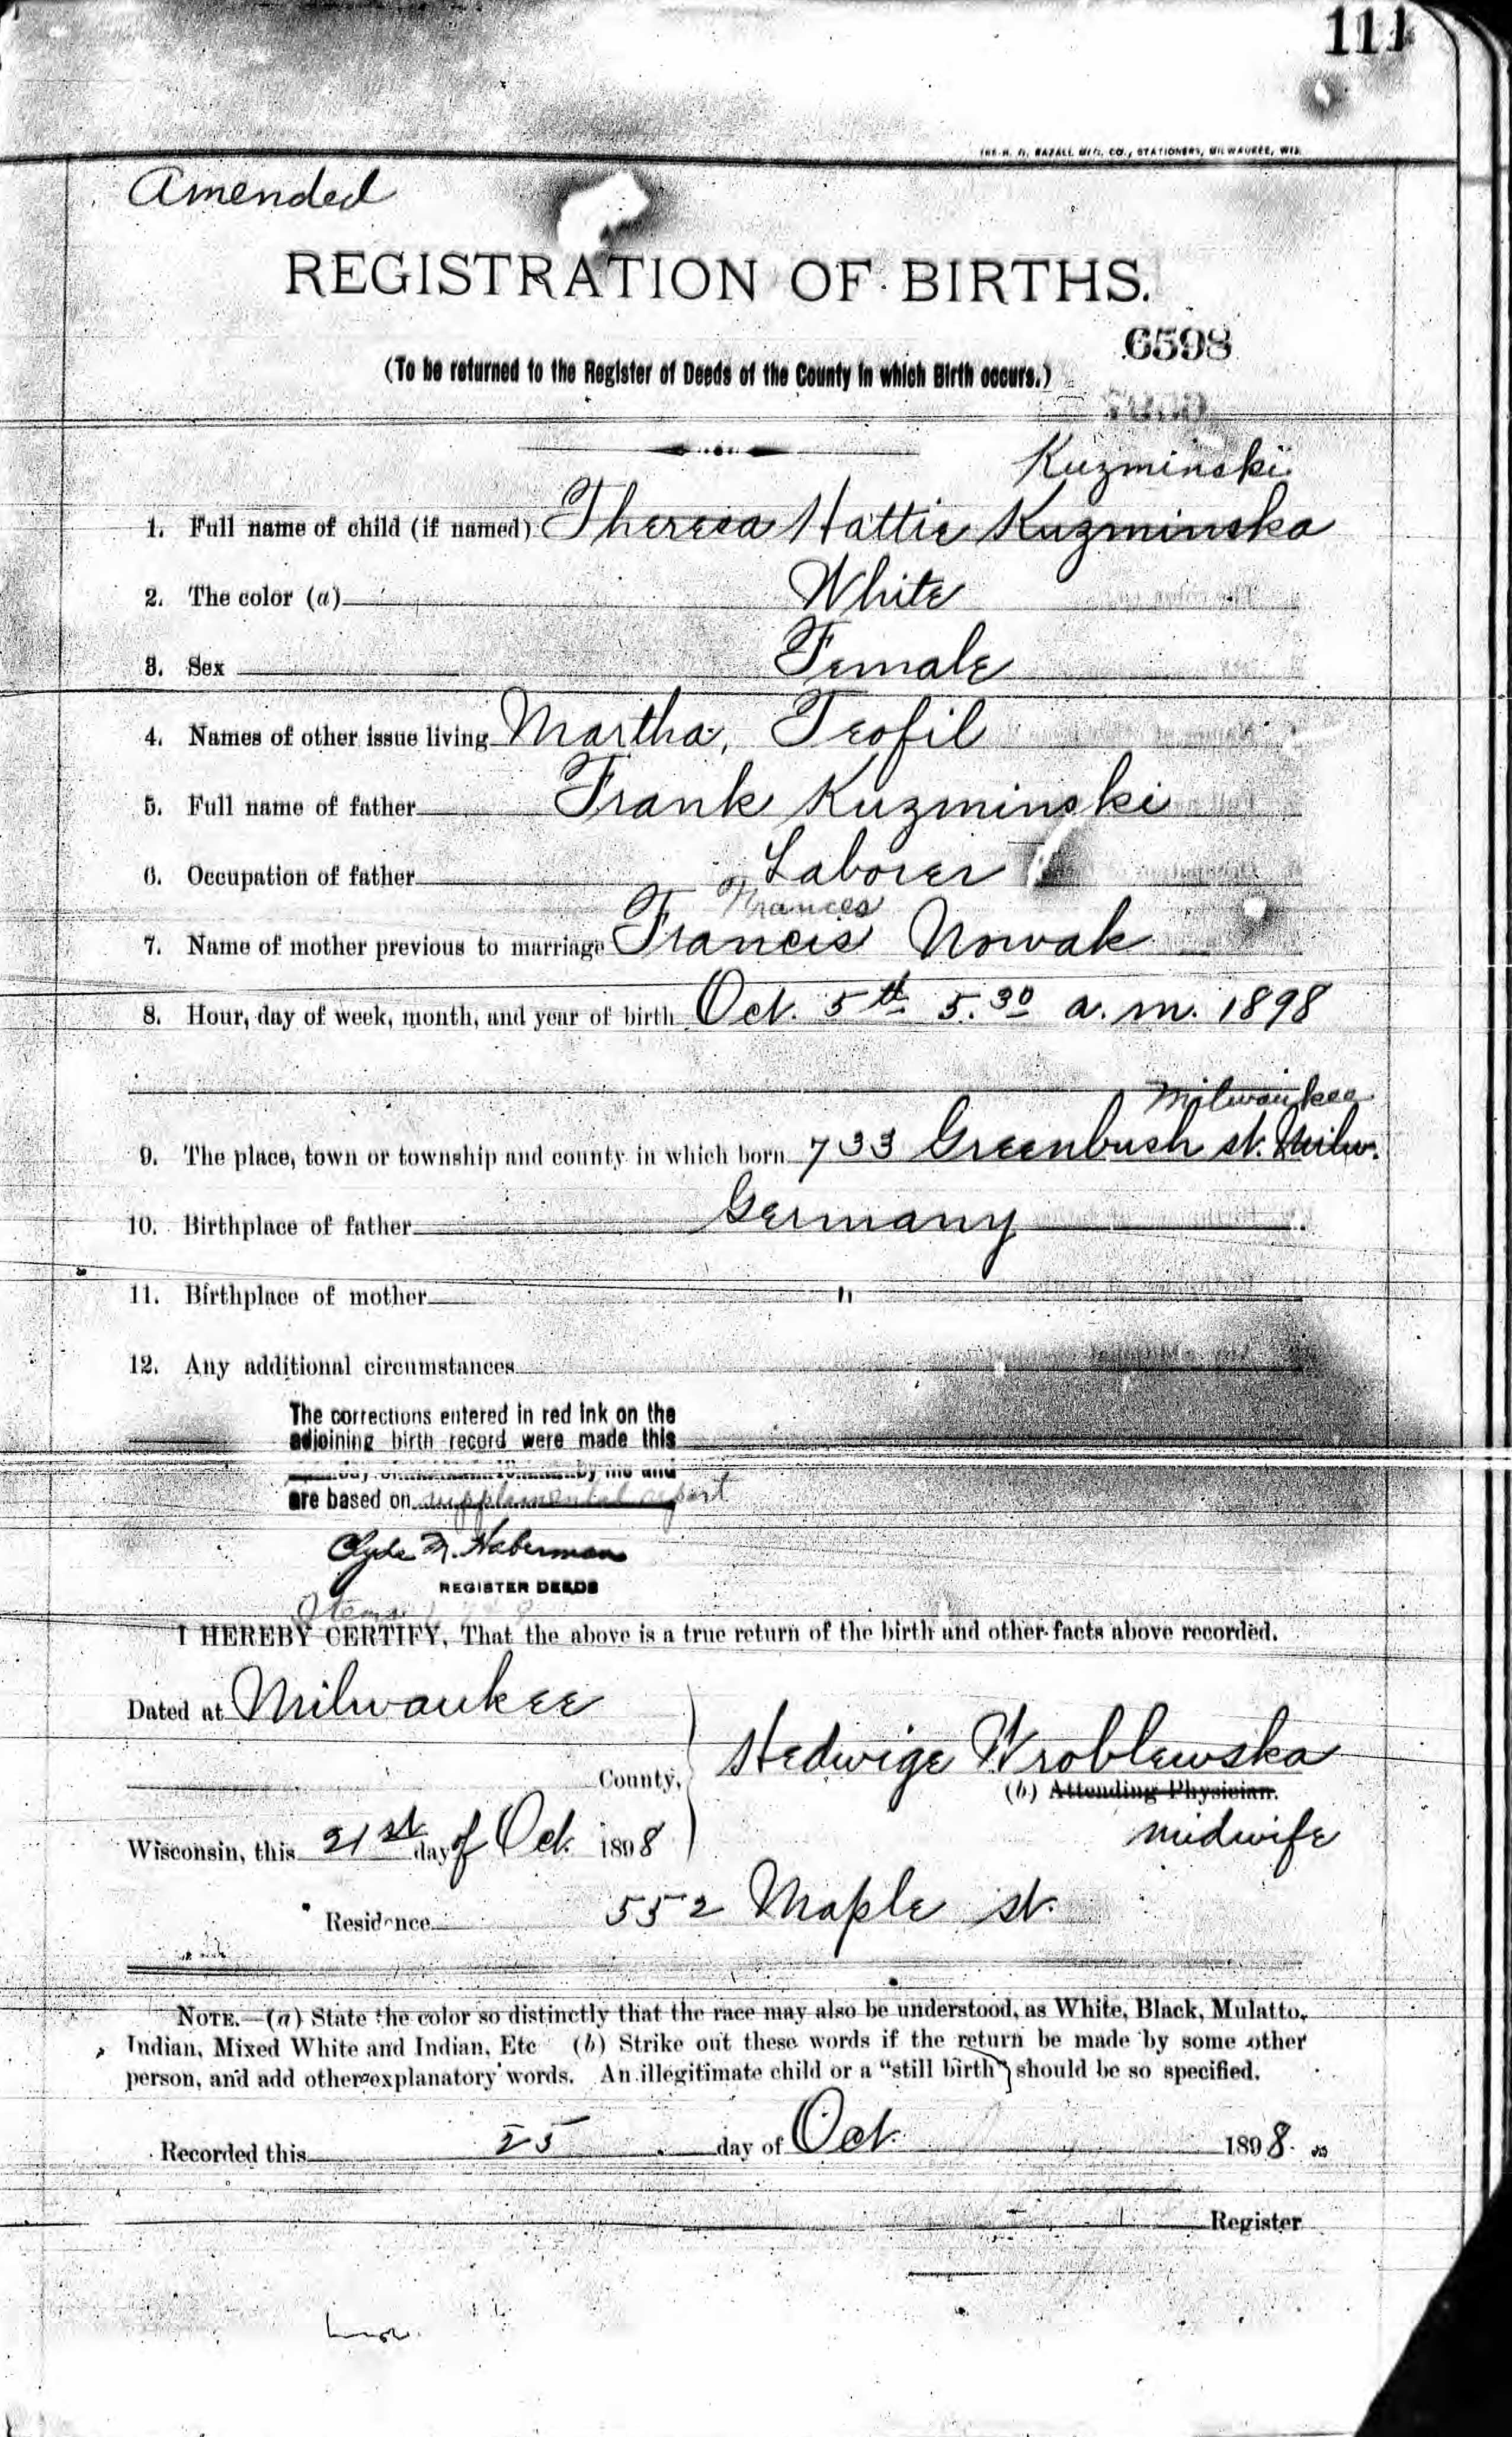 111
THE H. N. CO., STATIONERS, MILWAUKEE, WIS.
Amended
REGISTRATION OF BIRTHS.
6598
(To be returned to the Register of Deeds of the County in which Birth occurs.)
Kuzminski
1. Full name of child (if named) Theresa Hattie Kuzminska
2. The color (a) White
3. Sex Female
4. Names of other issue living Martha, Teofil
5. Full name of father Frank Kuzminski
6. Occupation of father Laborer
Frances
7. Name of mother previous to marriage Francis Nowak
8. Hour, day of week, month, and year of birth Oct. 5th 5.30 a.m. 1898
Milwaukee
9. The place, town or township and county in which born 733 Greenbush st. Milw.
10. Birthplace of father Germany
11. Birthplace of mother "
12. Any additional circumstances
The corrections entered in red ink on the
adjoining birth record were made this
day by me and
are based on supplemental report
Clyde M. Haberman
REGISTER DEEDS
Items
I HEREBY CERTIFY, That the above is a true return of the birth and other facts above recorded.
Dated at Milwaukee
County,
Hedwige Wroblewska
(b) Attending Physician.
midwife
Wisconsin, this 21st day of Oct. 1898
Residence 552 Maple st.
NOTE.—(a) State the color so distinctly that the race may also be understood, as White, Black, Mulatto,
Indian, Mixed White and Indian, Etc (b) Strike out these words if the return be made by some other
person, and add other explanatory words. An illegitimate child or a "still birth" should be so specified.
Recorded this 25 day of Oct. 1898.
Register